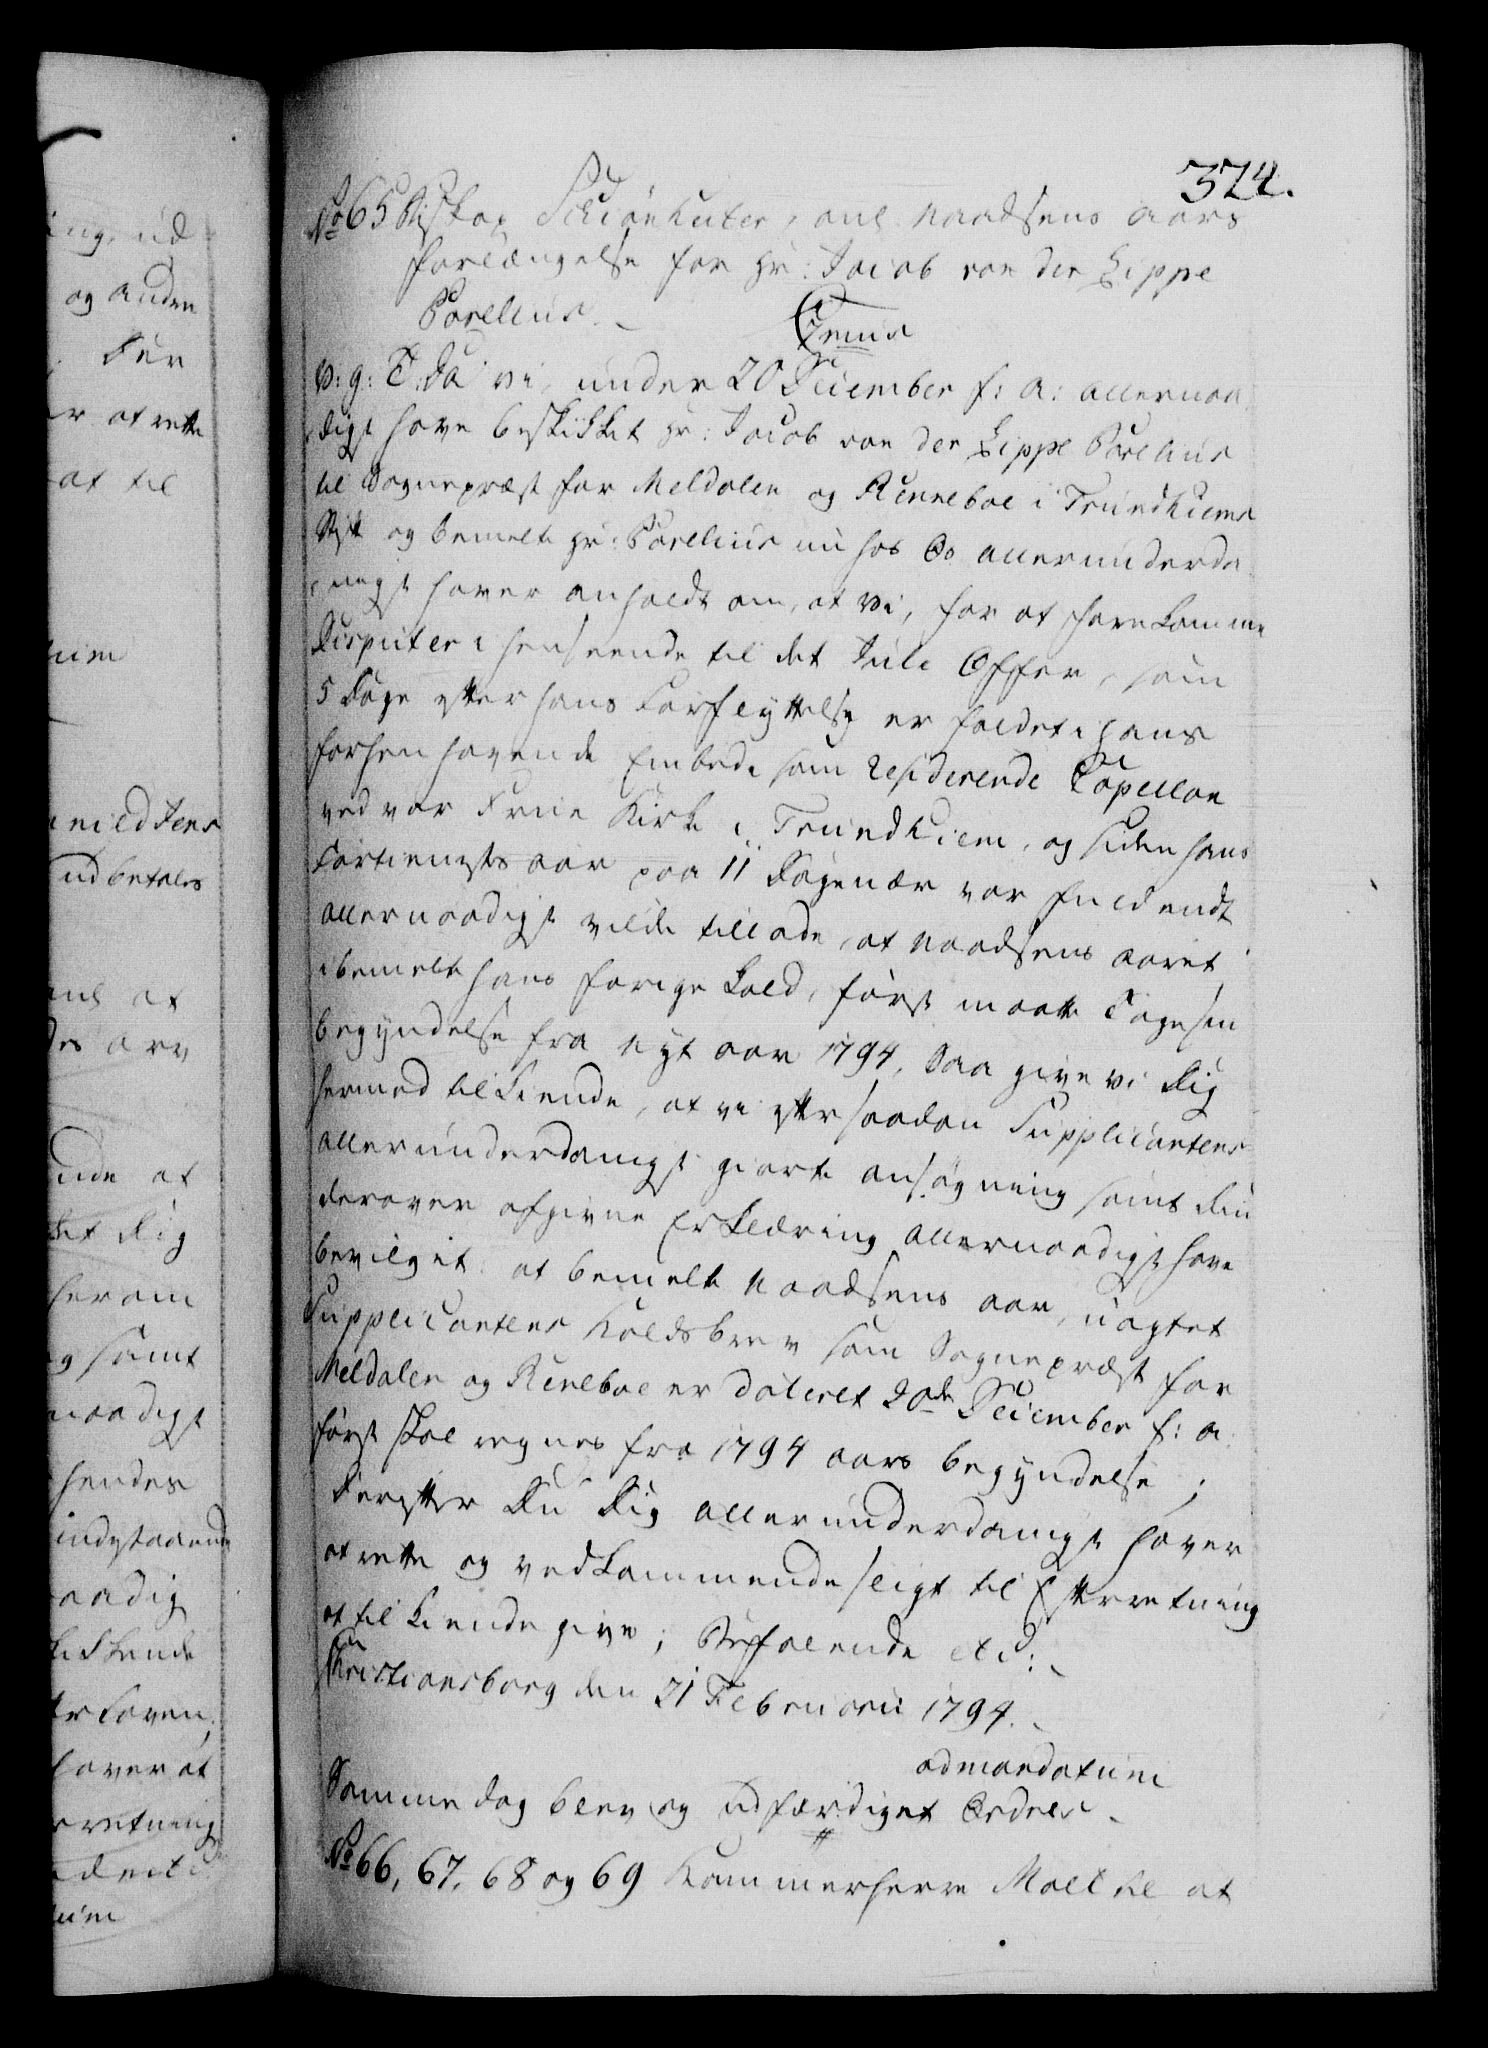 374.
No 65 Biskop Schiønheÿder, anl. Naadsens aars
Forlængelse for Hr: Jacob von der Lippe
Parelius.
C7mus
V: g: T. Da vi under 20 December f: a: allernaa
digst have beskikket Hr: Jacob von der Lippe Parelius
til Sognepræst for Meldalen og Renneboe i Trundhiems
Stift og bemelte Hr: Parelius nu hos Os allerunderda
nigst haver anholdt om, at vi, for at forekomme
Disputer i henseende til det Jule Offer, som
5 Dage efter hans Forflyttelse er faldet i hans
forhen havende Embede som residerende Capellan
ved vor Frue Kirke i Trundhiem, og siden hans
Fortieneste aar paa 11 Dage nær var fuldendt
allernaadigst vilde tillade, at Naadsens aaret
i bemelte hans forrige Kald, først maatte tage sin
begyndelse fra Nyt aar 1794, Saa give vi Dig
hermed tilkiende, at vi efter saadan Supplicantens
allerunderdanigst giorte ansøgning samt Din
derover afgivne Erklæring allernaadigst have
bevilget: at bemelte Naadsens aar, uagtet
Supplicantens Kaldsbrev som Sognepræst for
Meldalen og Reneboe er dateret 20de December f: a.
først skal regnes fra 1794 aars begyndelse;
Derefter Du Dig allerunderdanigst haver
at rette og vedkommende sligt til Efterretning
at tilkiende give; Befalende etc:
Christiansborg den 21 Februarii 1794.
ad mandatum
Samme dag blev og udfærdiget Ordres
No 66, 67, 68 og 69 Kammerherre Moltke at
ing, ud
og anden
Für
at rette
at til
uim
udbetales
anl at
arv
at
Dig
herom
samt
naadigst
hendes
indestaaende
naadig
haver at
retning